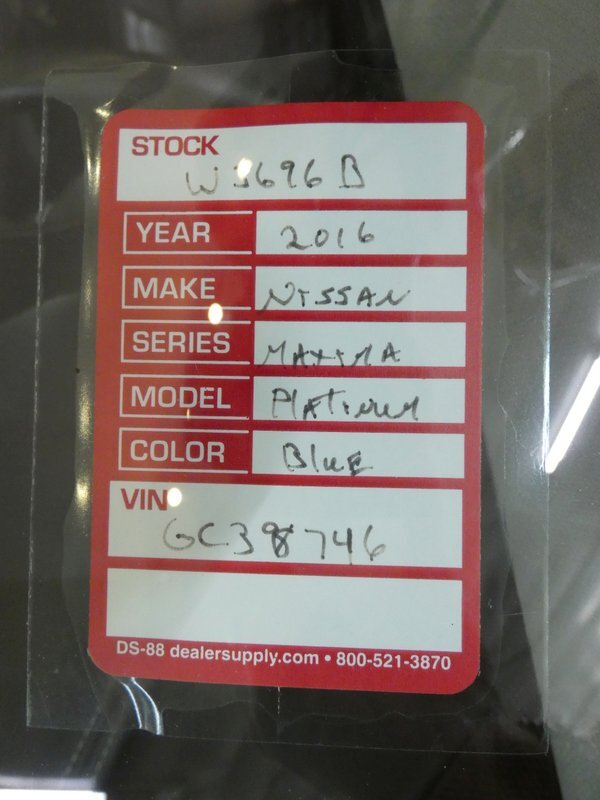 STOCK
W3696B
YEAR 2016
MAKE NISSAN
SERIES MAXIMA
MODEL PLATINUM
COLOR BLUE
VIN
GC398746
DS-88 dealersupply.com • 800-521-3870